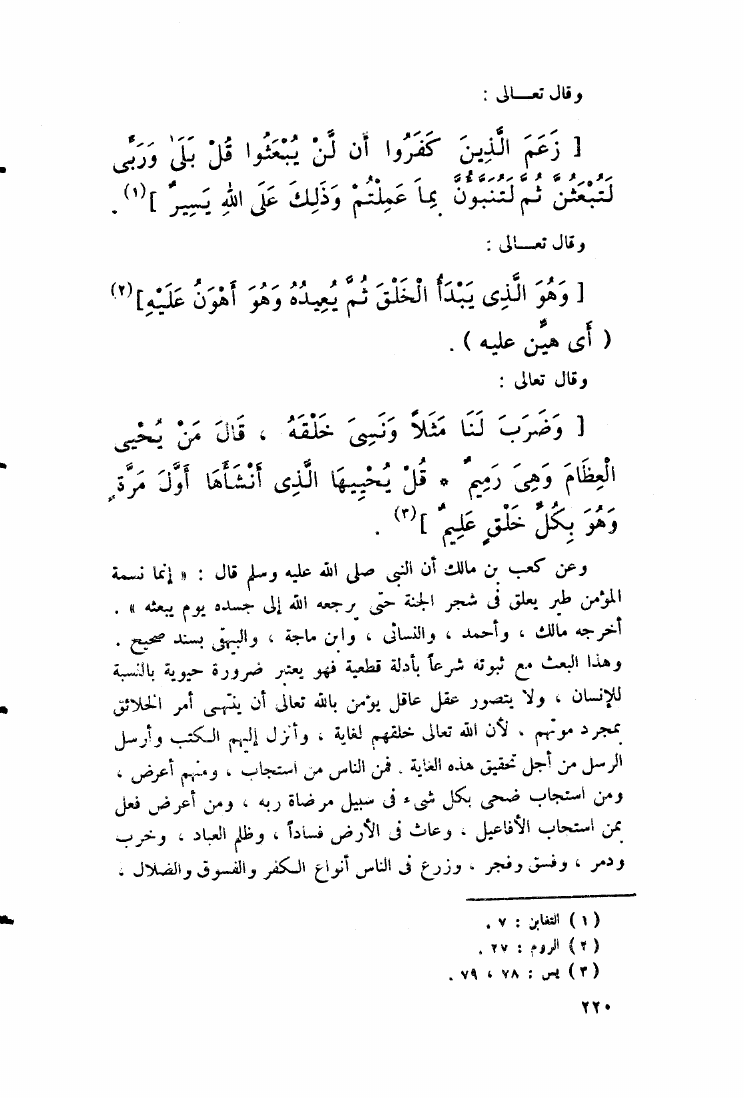 وقال تعـــالى :
[ زَعَمَ الَّذِينَ كَفَرُوا أَن لَّنْ يُبْعَثُوا قُلْ بَلَىٰ وَرَبِّى
لَتُبْعَثُنَّ ثُمَّ لَتُنَبَّؤُنَّ بِمَا عَمِلْتُمْ وَذَلِكَ عَلَى اللهِ يَسِيرٌ ](١) .
وقال تعـــالى :
[ وَهُوَ الَّذِى يَبْدَأُ الْخَلْقَ ثُمَّ يُعِيدُهُ وَهُوَ أَهْوَنُ عَلَيْهِ](٢)
( أَى هيِّن عليه ) .
وقال تعالى :
[ وَضَرَبَ لَنَا مَثَلاً وَنَسِىَ خَلْقَهُ ، قَالَ مَنْ يُحْيِى
الْعِظَامَ وَهِىَ رَمِيمٌ * قُلْ يُحْيِيهَا الَّذِى أَنْشَأَهَا أَوَّلَ مَرَّةٍ
وَهُوَ بِكُلِّ خَلْقٍ عَلِيمٌ ](٣) .
وعن كعب بن مالك أن النبى صلى الله عليه وسلم قال : « إنما نسمة
المؤمن طير يعلق فى شجر الجنة حتى يرجعه الله إلى جسده يوم يبعثه » .
أخرجه مالك ، وأحمد ، والنسائى ، وابن ماجة ، والبيهقى بسند صحيح .
وهذا البعث مع ثبوته شرعاً بأدلة قطعية فهو يعتبر ضرورة حيوية بالنسبة
للإنسان ، ولا يتصور عقل عاقل يؤمن بالله تعالى أن ينتهى أمر الخلائق
بمجرد موتهم ، لأن الله تعالى خلقهم لغاية ، وأنزل إليهم الكتب وأرسل
الرسل من أجل تحقيق هذه الغاية . فمن الناس من استجاب ، ومنهم أعرض ،
ومن استجاب ضحى بكل شىء فى سبيل مرضاة ربه ، ومن أعرض فعل
بمن استحاب الأفاعيل ، وعاث فى الأرض فساداً ، وظلم العباد ، وخرب
ودمر ، وفسق وفجر ، وزرع فى الناس أنواع الكفر والفسوق والضلال ،
(١) التغابن : ٧ .
(٢) الروم : ٢٧ .
(٣) يس : ٧٨ ، ٧٩ .
٢٢٠